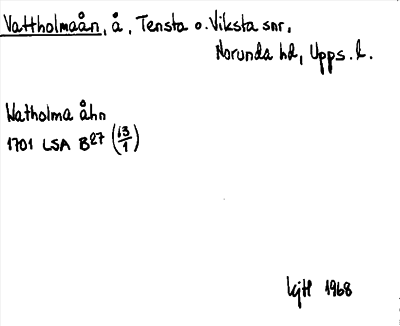 Vattholmaån, å, Tensta o. Viksta snr,
Norunda hd, Upps. l.
Watholma åhn
1701 LSA B27 (13/1)
1968